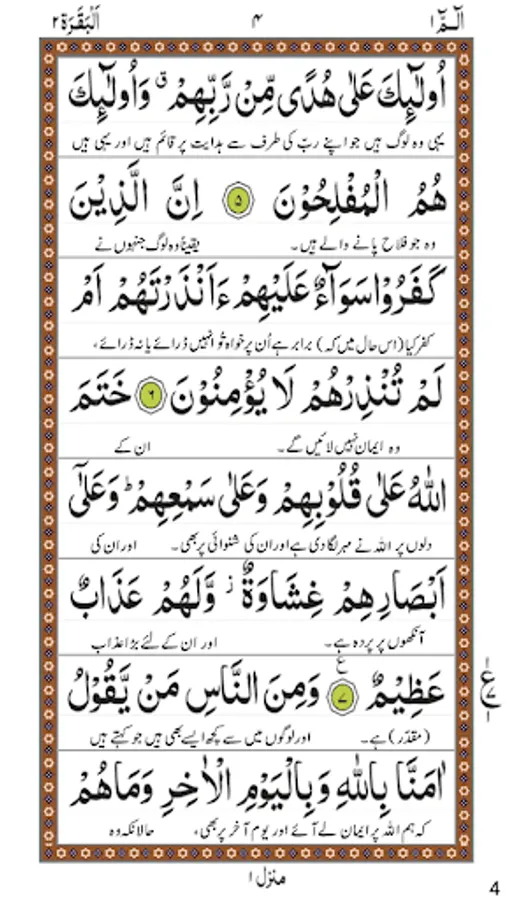 الٓمّٓ ۱ ۴ اَلْبَقَرَة ۲
اُولٰٓئِكَ عَلٰى هُدًى مِّنْ رَّبِّهِمْ ۗ وَاُولٰٓئِكَ
یہی وہ لوگ ہیں جو اپنے ربّ کی طرف سے ہدایت پر قائم ہیں اور یہی ہیں
هُمُ الْمُفْلِحُوْنَ ۵ اِنَّ الَّذِيْنَ
وہ جو فلاح پانے والے ہیں۔ یقیناً وہ لوگ جنہوں نے
كَفَرُوْا سَوَآءٌ عَلَيْهِمْ ءَاَنْذَرْتَهُمْ اَمْ
کفر کیا (اس حال میں کہ) برابر ہے اُن پر خواہ تُو انہیں ڈرائے یا نہ ڈرائے،
لَمْ تُنْذِرْهُمْ لَا يُؤْمِنُوْنَ ۶ خَتَمَ
وہ ایمان نہیں لائیں گے۔ ان کے
اللّٰهُ عَلٰى قُلُوْبِهِمْ وَعَلٰى سَمْعِهِمْ ؕ وَعَلٰٓى
دلوں پر اللہ نے مہر لگا دی ہے اور ان کی شنوائی پر بھی۔ اور ان کی
اَبْصَارِهِمْ غِشَاوَةٌ ز وَّلَهُمْ عَذَابٌ
آنکھوں پر پردہ ہے۔ اور ان کے لئے بڑا عذاب
عَظِيْمٌ ۷ ع وَمِنَ النَّاسِ مَنْ يَّقُوْلُ
(مقدّر) ہے۔ اور لوگوں میں سے کچھ ایسے بھی ہیں جو کہتے ہیں
اٰمَنَّا بِاللّٰهِ وَبِالْيَوْمِ الْاٰخِرِ وَمَا هُمْ
کہ ہم اللہ پر ایمان لے آئے اور یوم آخر پر بھی، حالانکہ وہ
منزل ۱
4